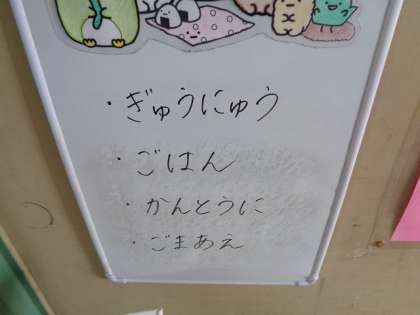 ・ぎゅうにゅう
・ごはん
・かんとうに
・ごまあえ